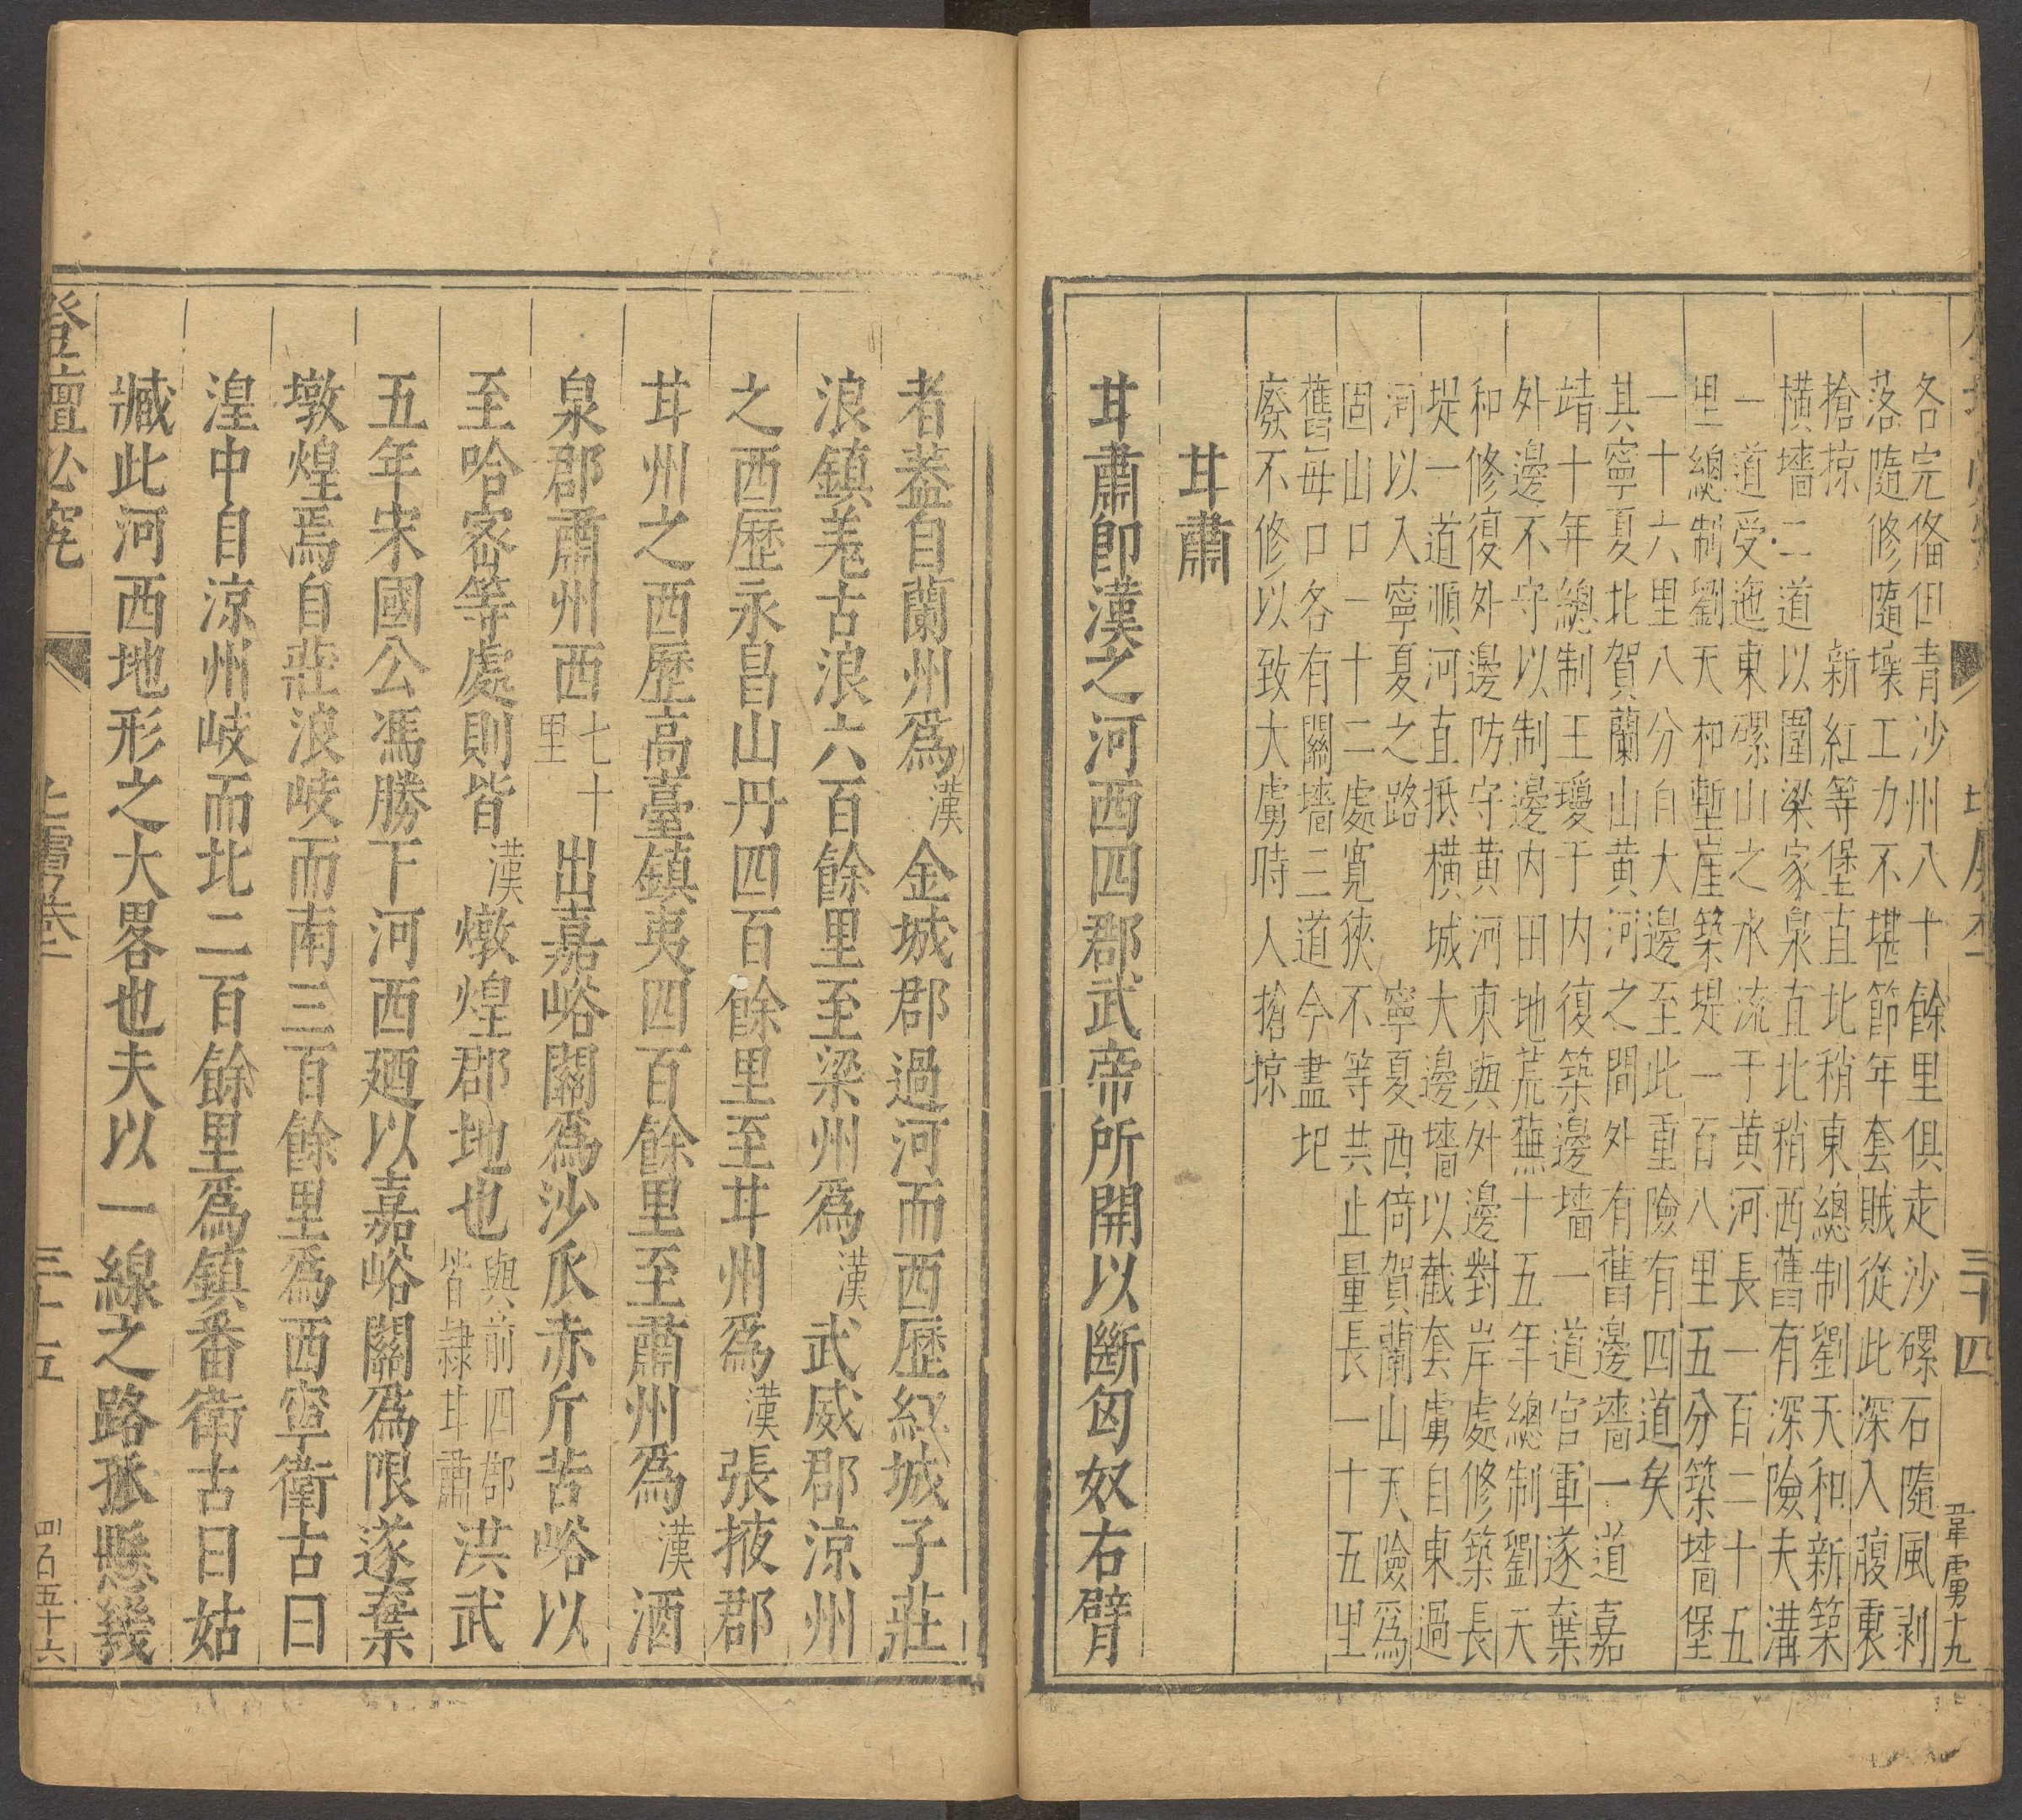 三十四
韋虜十九
各完俻但青沙州八十餘里俱走沙磥石隨風剥
落隨修隨壞工力不堪節年套賊從此深入腹裏
搶掠　新紅等堡直北稍東總制劉天和新築
橫墻二道以圍梁家泉直北稍西舊有深險夫溝
一道受迤東磥山之水流于黄河長一百二十五
里總制劉天和塹崖築堤一百八里五分築墻堡
一十六里八分自大邊至此重險有四道矣
其寧夏北賀蘭山黄河之間外有舊邊墻一道嘉
靖十年總制王瓊于内復築邊墻一道官軍遂棄
外邊不守以制邊内田地荒蕪十五年總制劉天
和修復外邊防守黄河東與外邊對岸處修築長
堤一道順河直抵橫城大邊墻以截套虜自東過
河以入寧夏之路　寧夏西倚賀蘭山天險爲
固山口一十二處寛狹不等共止量長一十五里
舊每口各有關墻三道今盡圮
廢不修以致大虜時人搶掠
甘肅
甘肅即漢之河西四郡武帝所開以斷匈奴右臂
者葢自蘭州爲漢金城郡過河而西歷紅城子莊
浪鎮羌古浪六百餘里至梁州爲漢武威郡涼州
之西歷永昌山丹四百餘里至甘州爲漢張掖郡
甘州之西歷高臺鎮夷四百餘里至肅州爲漢酒
泉郡肅州西七十里出嘉峪關爲沙瓜赤斤苦峪以
至哈密等處則皆漢燉煌郡地也與前四郡皆隷甘肅洪武
五年宋國公馮勝下河西廼以嘉峪關爲限遂棄
墩煌焉自莊浪岐而南三百餘里爲西寧衛古曰
湟中自涼州岐而北二百餘里爲鎮番衛古曰姑
臧此河西地形之大畧也夫以一線之路孤懸幾
登壇必究
北虜卷二
三十五
四百五十六